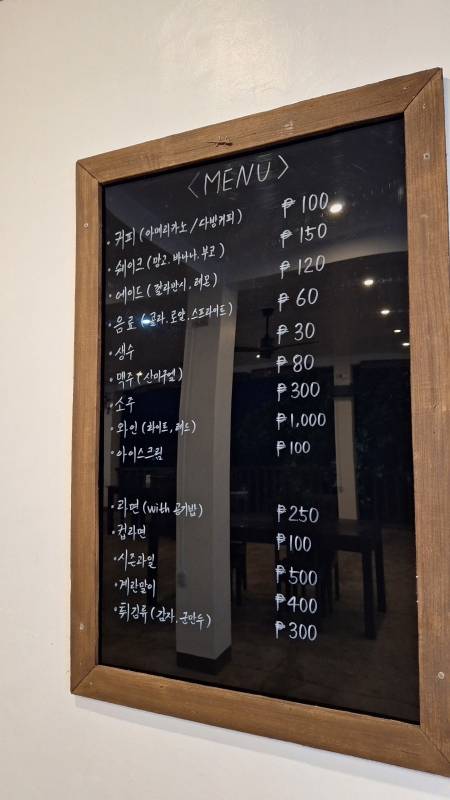 <MENU>
· 커피 (아메리카노 / 다방커피) ₱ 100
· 쉐이크 (망고. 바나나. 부코) ₱ 150
· 에이드 (깔라만시. 레몬) ₱ 120
· 음료 (콜라. 로얄. 스프라이트) ₱ 60
· 생수 ₱ 30
· 맥주 (산미구엘) ₱ 80
· 소주 ₱ 300
· 와인 (화이트, 레드) ₱ 1,000
· 아이스크림 ₱ 100
· 라면 (with 공기밥) ₱ 250
· 컵라면 ₱ 100
· 시즌과일 ₱ 500
· 계란말이 ₱ 400
· 튀김류 (감자. 군만두) ₱ 300